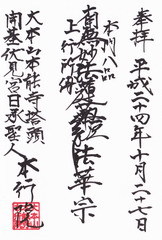 奉拝
平成二十四年十月二十七日
本門八品
南無妙法蓮華経
上行所傳
法華宗
大本山本能寺塔頭
開基伏見宮日承聖人
本行院